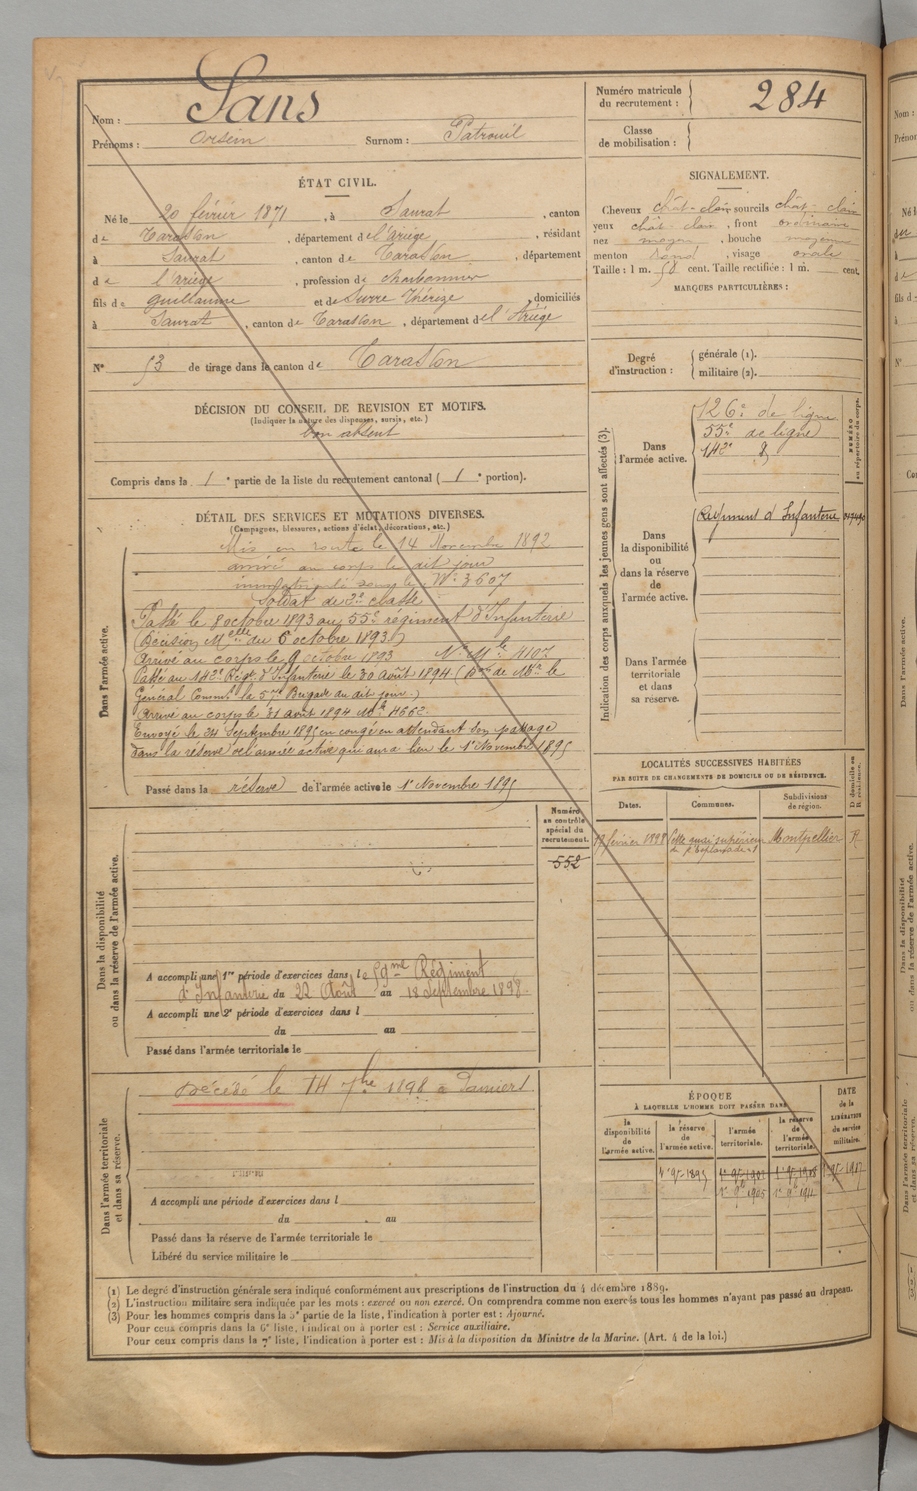 Nom : Sans
Prénoms : Orsein Surnom : Patrouil
Numéro matricule du recrutement : 284
Classe de mobilisation :
ÉTAT CIVIL.
Né le 20 février 1871, à Saurat, canton
de Tarascon, département de l'Ariège, résidant
à Saurat, canton de Tarascon, département
de l'Ariège, profession de charbonnier
fils de Guillaume et de Surre Thérèze, domiciliés
à Saurat, canton de Tarascon, département de l'Ariège
N° 53 de tirage dans le canton de Tarascon
SIGNALEMENT.
Cheveux chât-clair sourcils chât-clair
yeux chât clair, front ordinaire
nez moyen, bouche moyenne
menton rond, visage ovale
Taille : 1 m. 58 cent. Taille rectifiée : 1 m. cent.
MARQUES PARTICULIÈRES :
Degré d'instruction : générale (1).
militaire (2).
DÉCISION DU CONSEIL DE REVISION ET MOTIFS.
(Indiquer la nature des dispenses, sursis, etc.)
bon absent
Compris dans la 1e partie de la liste du recrutement cantonal ( 1e portion).
DÉTAIL DES SERVICES ET MUTATIONS DIVERSES.
(Campagnes, blessures, actions d'éclat, décorations, etc.)
Dans l'armée active.
Mis en route le 14 Novembre 1892
arrivé au corps le dit jour
immatriculé sous le N° 3607
Soldat de 2e classe
Passé le 8 octobre 1893 au 55e régiment d'Infanterie
(Décision Melle du 6 octobre 1893)
Arrivé au corps le 9 octobre 1893 N° Mle 4107
Passé au 142e Régt d'Infanterie le 30 Août 1894 ( de Mr le
Général Commt la 57e Brigade au dit jour.)
Arrivé au corps le 31 août 1894 Mle 4662.
Envoyé le 24 Septembre 1895 en congé en attendant son passage
dans la réserve de l'armée active qui aura lieu le 1er Novembre 1895
Passé dans la réserve de l'armée active le 1er Novembre 1895
Indication des corps auxquels les jeunes gens sont affectés (3).
NUMÉRO au répertoire du corps.
Dans l'armée active.
126e de ligne
55e de ligne
142e d
Dans la disponibilité ou dans la réserve de l'armée active.
Régiment d'Infanterie
Dans l'armée territoriale et dans sa réserve.
LOCALITÉS SUCCESSIVES HABITÉES
PAR SUITE DE CHANGEMENTS DE DOMICILE OU DE RÉSIDENCE.
Dates. Communes. Subdivisions de région. D. domicile ou R. résidence.
février 1898 Cette quai supérieur Montpellier R
de l'Esplanade
Dans la disponibilité ou dans la réserve de l'armée active.
Numéro au contrôle spécial du recrutement.
552
A accompli une 1re période d'exercices dans le 59me Régiment
d'Infanterie du 22 Août au 18 Septembre 1898.
A accompli une 2e période d'exercices dans l
du au
Passé dans l'armée territoriale le
Dans l'armée territoriale et dans sa réserve.
Décédé le 14 7bre 1898 à Pamiers
A accompli une période d'exercices dans l
du au
Passé dans la réserve de l'armée territoriale le
Libéré du service militaire le
ÉPOQUE
À LAQUELLE L'HOMME DOIT PASSER DANS
la disponibilité de l'armée active. la réserve de l'armée active. l'armée territoriale. la réserve de l'armée territoriale.
DATE de la LIBÉRATION du service militaire.
1er 9bre 1895
(1) Le degré d'instruction générale sera indiqué conformément aux prescriptions de l'instruction du 4 décembre 1889.
(2) L'instruction militaire sera indiquée par les mots : exercé ou non exercé. On comprendra comme non exercés tous les hommes n'ayant pas passé au drapeau.
(3) Pour les hommes compris dans la 5e partie de la liste, l'indication à porter est : Ajourné.
Pour ceux compris dans la 6e liste, l'indication à porter est : Service auxiliaire.
Pour ceux compris dans la 7e liste, l'indication à porter est : Mis à la disposition du Ministre de la Marine. (Art. 4 de la loi.)